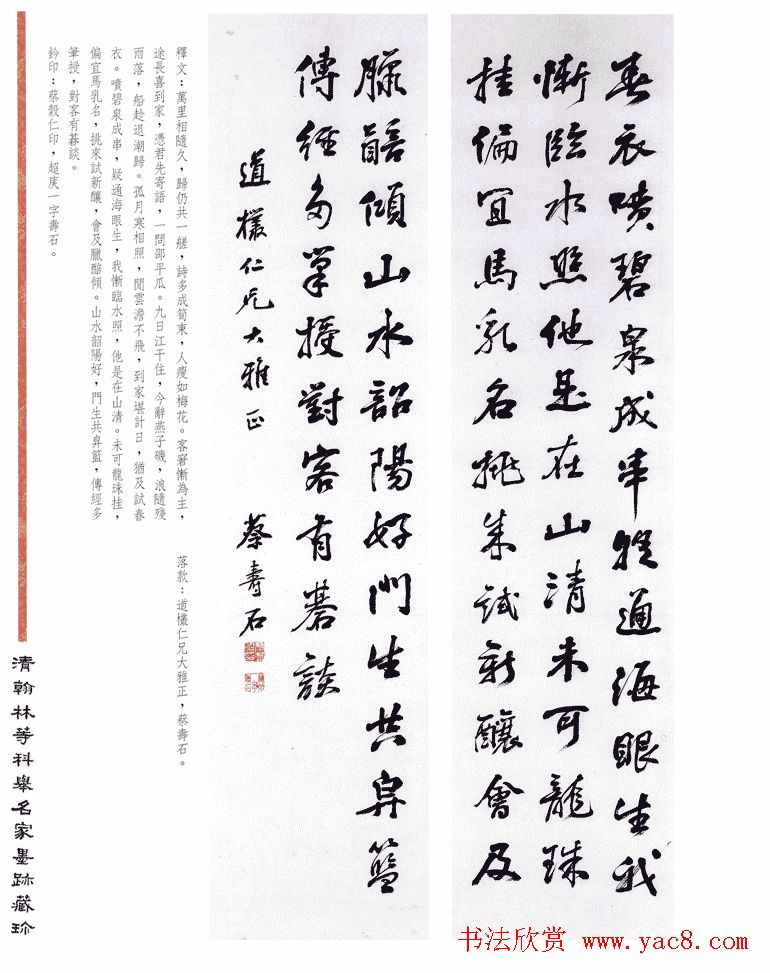 春衣噴碧泉成串疑通海眼生我
慚臨水照他是在山清未可龍珠
挂偏宜馬乳名挑來試新釀會及
臘醅傾山水韶陽好門生共舁籃
傳經多筆授對客有碁談
道欉仁兄大雅正 蔡壽石
釋文：萬里相隨久，歸仍共一艖，詩多成筍束，人瘦如梅花。客窘慚為主，
途長喜到家，憑君先寄語，一問邵平瓜。九日江干住，今辭燕子磯，浪隨殘
雨落，船趁退潮歸。孤月寒相照，閒雲澹不飛，到家堪計日，猶及試春
衣。噴碧泉成串，疑通海眼生，我慚臨水照，他是在山清。未可龍珠挂，
偏宜馬乳名，挑來試新釀，會及臘醅傾。山水韶陽好，門生共舁籃，傳經多
筆授，對客有碁談。
鈐印：蔡穀仁印，超庚一字壽石。
落款：道欉仁兄大雅正，蔡壽石。
清翰林等科舉名家墨跡藏珍
书法欣赏 www.yac8.com